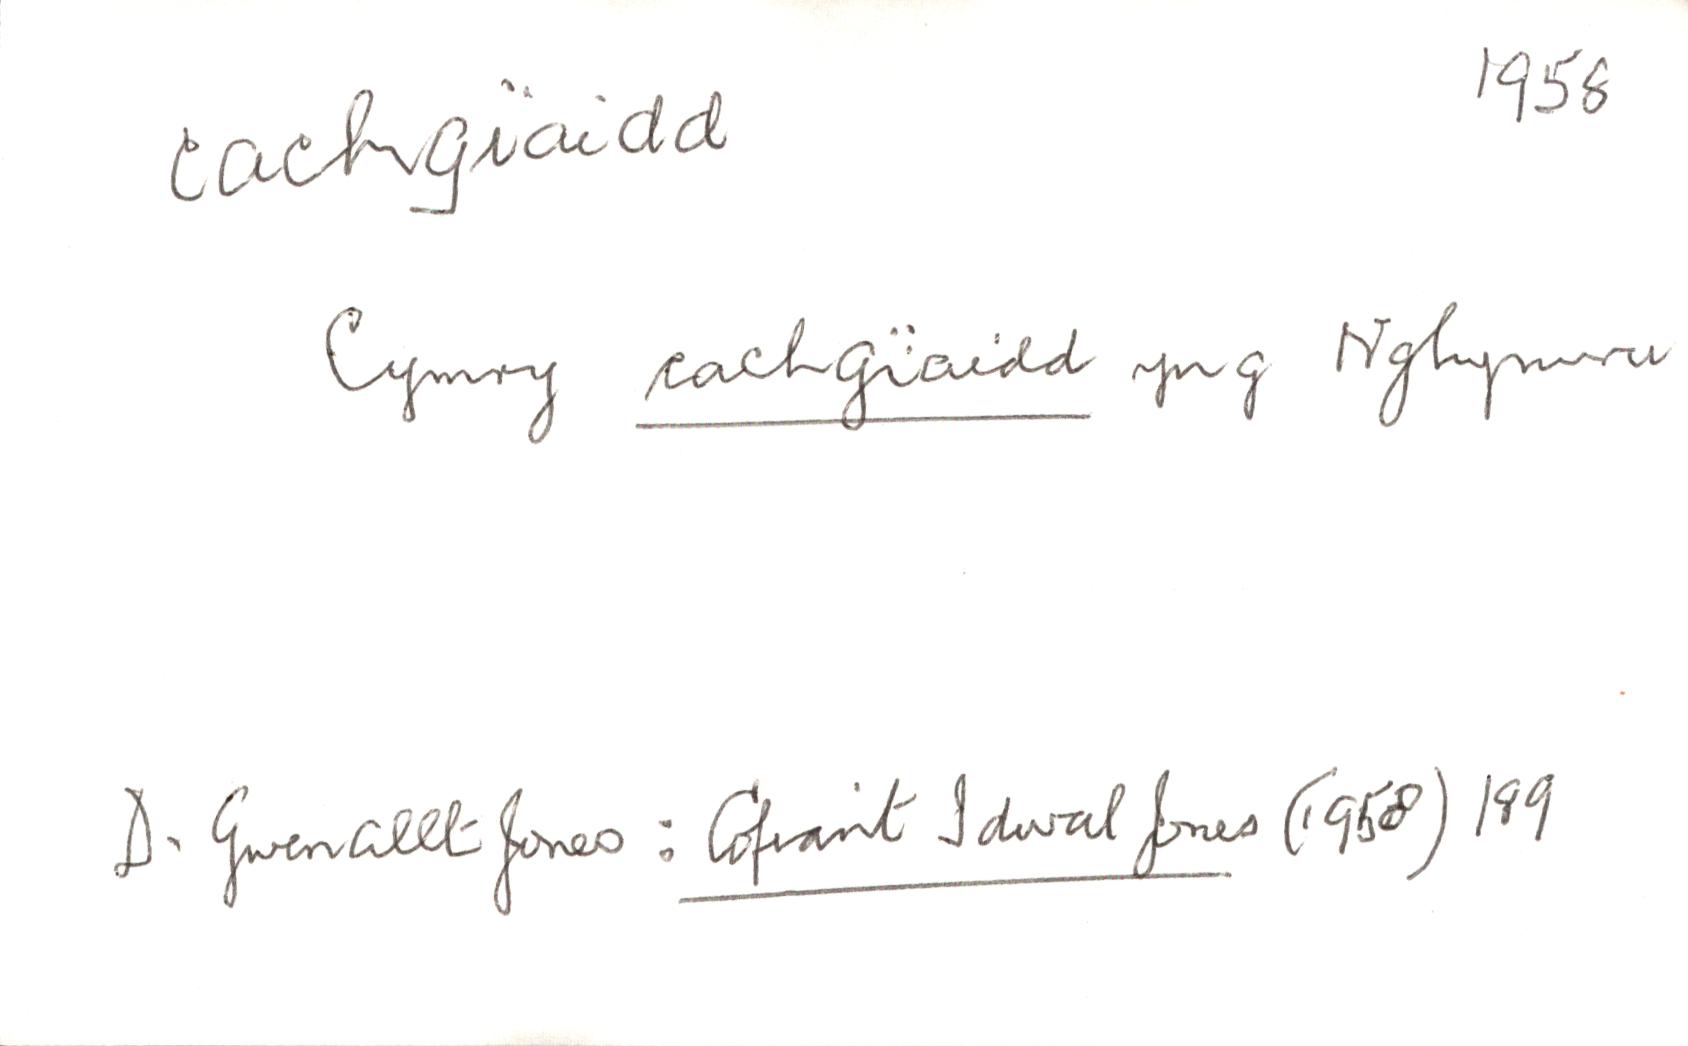 1958
cachgïaidd
Cymry cachgïaidd yng Nghymru
D. Gwenallt Jones : Cofiant Idwal Jones (1958) 189